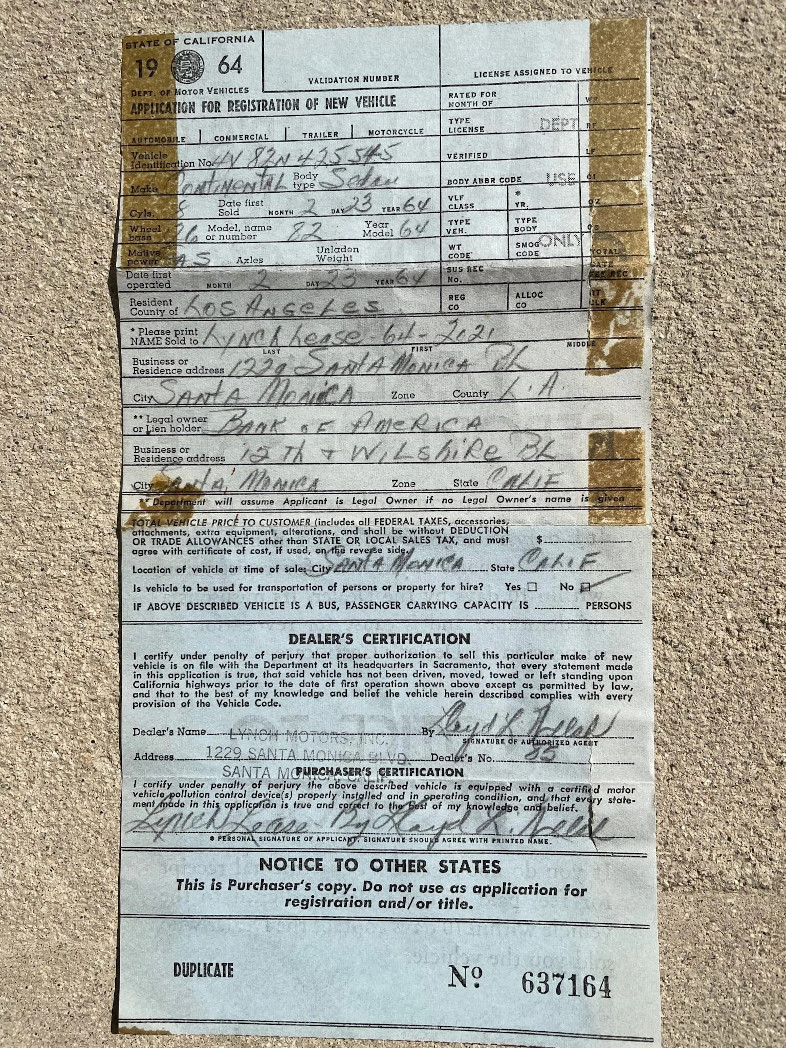 STATE OF CALIFORNIA
19 64
DEPT. OF MOTOR VEHICLES
VALIDATION NUMBER
LICENSE ASSIGNED TO VEHICLE
APPLICATION FOR REGISTRATION OF NEW VEHICLE
RATED FOR MONTH OF
AUTOMOBILE COMMERCIAL TRAILER MOTORCYCLE
TYPE LICENSE
DEPT
Vehicle Identification No. 4Y 82N 425545
VERIFIED
Make Continental Body type Sedan
BODY ABBR CODE
USE
Cyls. 8 Date first Sold MONTH 2 DAY 23 YEAR 64
VLF CLASS
* YR.
Wheel base 26 Model, name or number 82 Year Model 64
TYPE VEH.
TYPE BODY
Motive power GAS Axles Unladen Weight
WT CODE
SMOG CODE
ONLY
TOTAL
Date first operated MONTH 2 DAY 23 YEAR 64
SUS REC No.
Resident County of Los Angeles
REG CO
ALLOC CO
* Please print NAME Sold to Lynch Lease - 64 - 2121
LAST FIRST MIDDLE
Business or Residence address 1229 Santa Monica BL
City Santa Monica Zone County L.A.
** Legal owner or Lien holder BANK OF AMERICA
Business or Residence address 12th + Wilshire BL
City Santa Monica Zone State CALIF
** Department will assume Applicant is Legal Owner if no Legal Owner's name is given
TOTAL VEHICLE PRICE TO CUSTOMER (includes all FEDERAL TAXES, accessories,
attachments, extra equipment, alterations, and shall be without DEDUCTION
OR TRADE ALLOWANCES other than STATE OR LOCAL SALES TAX, and must $
agree with certificate of cost, if used, on the reverse side.
Location of vehicle at time of sale: City Santa Monica State CALIF
Is vehicle to be used for transportation of persons or property for hire? Yes ☐ No ☑
IF ABOVE DESCRIBED VEHICLE IS A BUS, PASSENGER CARRYING CAPACITY IS PERSONS
DEALER'S CERTIFICATION
I certify under penalty of perjury that proper authorization to sell this particular make of new
vehicle is on file with the Department at its headquarters in Sacramento, that every statement made
in this application is true, that said vehicle has not been driven, moved, towed or left standing upon
California highways prior to the date of first operation shown above except as permitted by law,
and that to the best of my knowledge and belief the vehicle herein described complies with every
provision of the Vehicle Code.
Dealer's Name LYNCH MOTORS, INC. By
SIGNATURE OF AUTHORIZED AGENT
Address 1229 SANTA MONICA BLVD. Dealer's No. 85
SANTA MONICA, CALIF.
PURCHASER'S CERTIFICATION
I certify under penalty of perjury the above described vehicle is equipped with a certified motor
vehicle pollution control device(s) properly installed and in operating condition, and that every state-
ment made in this application is true and correct to the best of my knowledge and belief.
Lynch Lease By Lloyd L.
* PERSONAL SIGNATURE OF APPLICANT. SIGNATURE SHOULD AGREE WITH PRINTED NAME.
NOTICE TO OTHER STATES
This is Purchaser's copy. Do not use as application for
registration and/or title.
DUPLICATE No. 637164